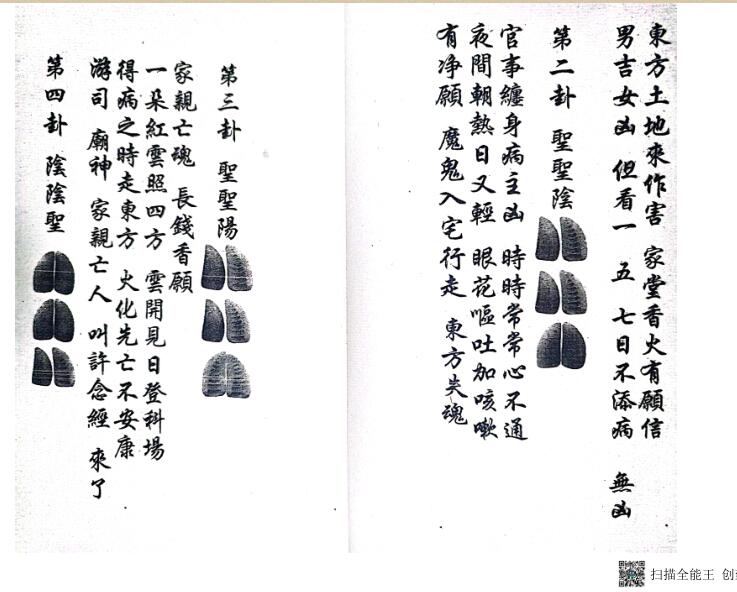 東方土地來作害 家堂香火有願信
男吉女凶 但看一 五 七日不添病 無凶
第二卦 聖聖陰
官事纏身病主凶 時時常常心不通
夜間朝熱日又輕 眼花嘔吐加咳嗽
有净願 魔鬼入宅行走 東方失魂
第三卦 聖聖陽
家親亡魂 長錢香願
一朵紅雲照四方 雲開見日登科場
得病之時走東方 火化先亡不安康
游司 廟神 家親亡人 叫許念經 來了
第四卦 陰陰聖
扫描全能王 创